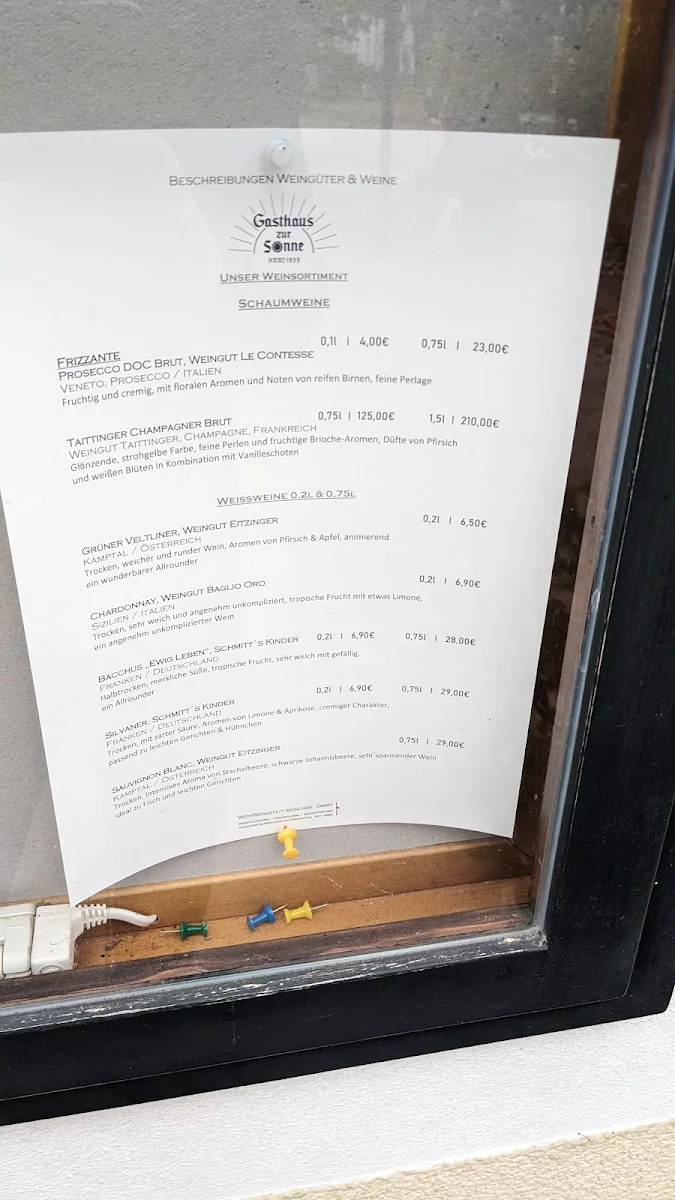 BESCHREIBUNGEN WEINGÜTER & WEINE
Gasthaus
zur
Sonne
1855
UNSER WEINSORTIMENT
SCHAUMWEINE
FRIZZANTE 0,1l | 4,00€ 0,75l | 23,00€
PROSECCO DOC BRUT, WEINGUT LE CONTESSE
VENETO, PROSECCO / ITALIEN
Fruchtig und cremig, mit floralen Aromen und Noten von reifen Birnen, feine Perlage
TAITTINGER CHAMPAGNER BRUT 0,75l | 125,00€ 1,5l | 210,00€
WEINGUT TAITTINGER, CHAMPAGNE, FRANKREICH
Glänzende, strohgelbe Farbe, feine Perlen und fruchtige Brioche-Aromen, Düfte von Pfirsich
und weißen Blüten in Kombination mit Vanilleschoten
WEISSWEINE 0,2L & 0,75L
GRÜNER VELTLINER, WEINGUT EITZINGER 0,2l | 6,50€
KAMPTAL / ÖSTERREICH
Trocken, weicher und runder Wein, Aromen von Pfirsich & Apfel, animierend
ein wunderbarer Allrounder
CHARDONNAY, WEINGUT BAGLIO ORO 0,2l | 6,90€
SIZILIEN / ITALIEN
Trocken, sehr weich und angenehm unkompliziert, tropische Frucht mit etwas Limone,
ein angenehm unkomplizierter Wein
BACCHUS „EWIG LEBEN“, SCHMITT´S KINDER 0,2l | 6,90€ 0,75l | 28,00€
FRANKEN / DEUTSCHLAND
Halbtrocken, merkliche Süße, tropische Frucht, sehr weich mit gefällig,
ein Allrounder
SILVANER, SCHMITT´S KINDER 0,2l | 6,90€ 0,75l | 29,00€
FRANKEN / DEUTSCHLAND
Trocken, mit zarter Säure, Aromen von Limone & Aprikose, cremiger Charakter,
passend zu leichten Gerichten & Hühnchen
SAUVIGNON BLANC, WEINGUT EITZINGER 0,75l | 29,00€
KAMPTAL / ÖSTERREICH
Trocken, intensives Aroma von Stachelbeere, schwarze Johannisbeere, sehr spannender Wein
ideal zu Fisch und leichten Gerichten
WEINWERKSTATT MÜNCHEN GMBH